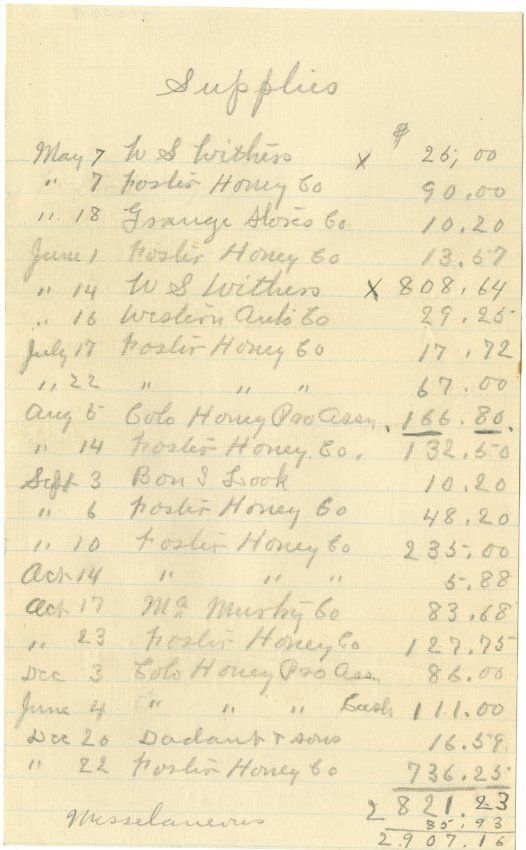 Supplies
$
May 7 W S Withers x 25,00
" 7 Foster Honey Co 90.00
" 18 Grange Stores Co 10.20
June 1 Foster Honey Co 13.57
" 14 W S Withers x 808.64
" 16 Western Auto Co 29.25
July 17 Foster Honey Co 17.72
" 22 " " " 67.00
Aug 5 Colo Honey Pro Assn. 166.80.
" 14 Foster Honey Co. 132.50
Sept 3 Bon I Look 10.20
" 6 Foster Honey Co 48.20
" 10 Foster Honey Co 235.00
Oct 14 " " " 5.88
Oct 17 Co 83.68
" 23 Foster Honey Co 127.75
Dec 3 Colo Honey Pro Assn 86.00
June 4 " " " Cash 111.00
Dec 20 Dadant & Sons 16.59
" 22 Foster Honey Co 736.25
2821.23
Misselaneous 85.93
2.907.16